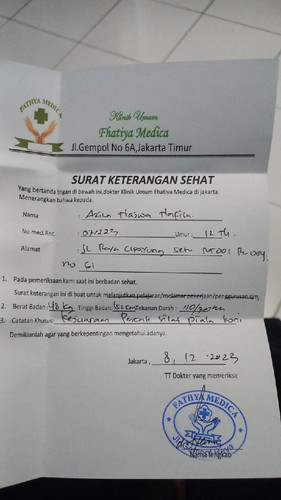 FATHYA MEDICA
Klinik Umum
Fhatiya Medica
Jl.Gempol No 6A,Jakarta Timur
SURAT KETERANGAN SEHAT
Yang bertanda tangan di bawah ini,dokter Klinik Umum Fhatiya Medica di jakarta
Menerangkan bahwa kepada:
Nama :
No med.Rec. : 071223 Umur : 12 Th
Alamat : JL Raya Cipayung Setu RT 001 Rw 004
No 61
1. Pada pemeriksaan kami saat ini berbadan sehat.
Surat keterangan ini di buat untuk melanjutkan pelajar/melamar pekerjaan/penggurusan sim
2. Berat Badan 48 Kg Tinggi Badan 152 cm tekanan Darah : 110/
3. Catatan Khusus : Kejuaraan Pencak Silat Piala Koni
Demikianlah agar yang berkepentingan mengetahui adanya.
Jakarta, 8, 12 -2023
TT Dokter yang memeriksa
FATHYA MEDICA
Nama lengkap